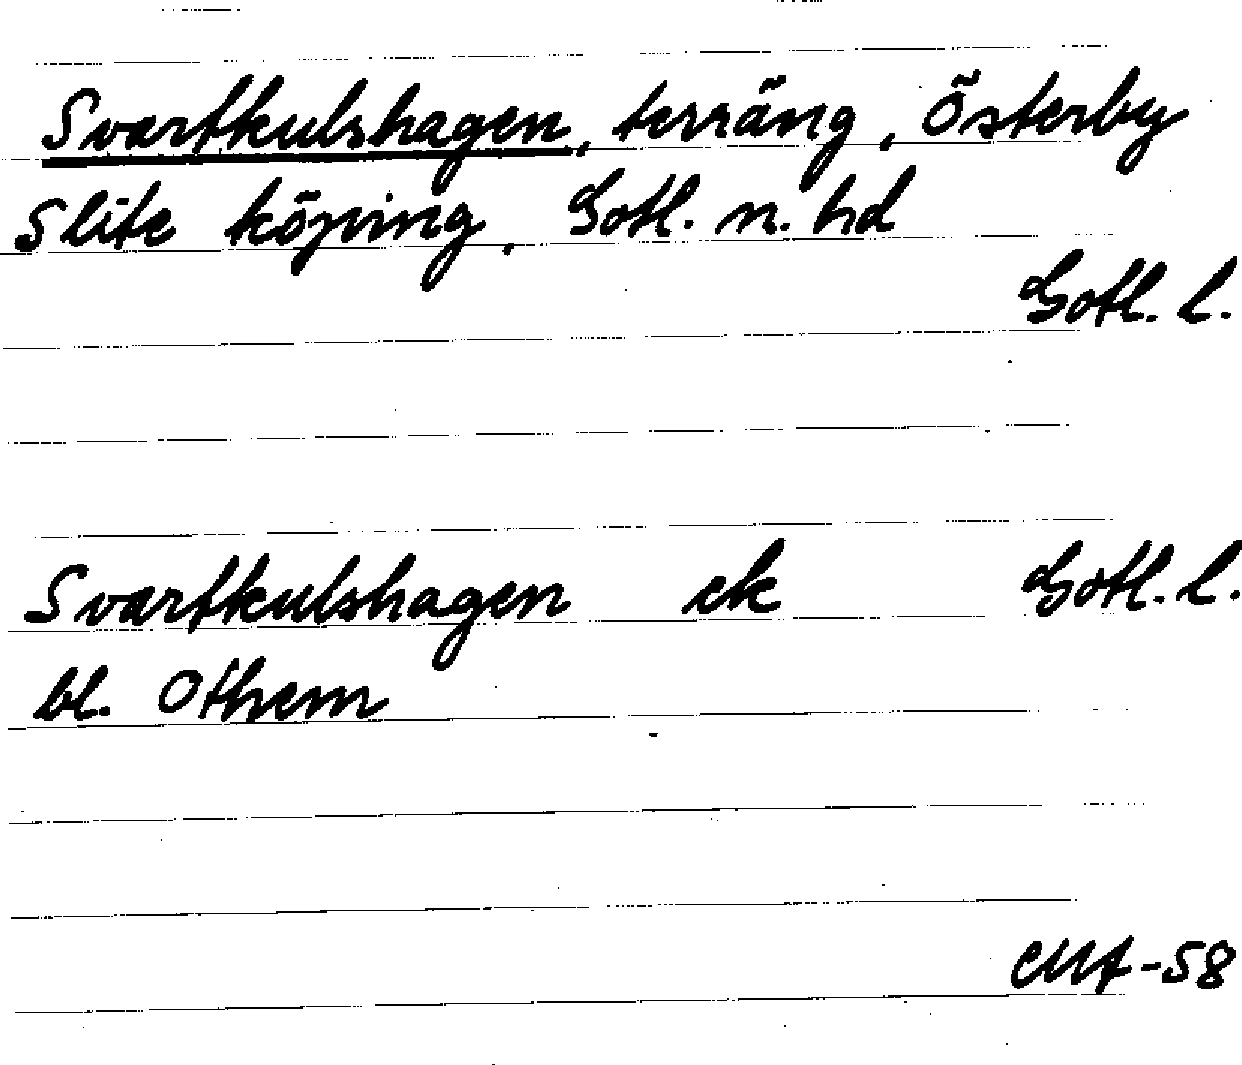 Svartkulshagen, terräng, Österby
Slite köping, Gotl. n. hd
Gotl. l.
Svartkulshagen ek Gotl. l.
bl. Othem
CMA-58